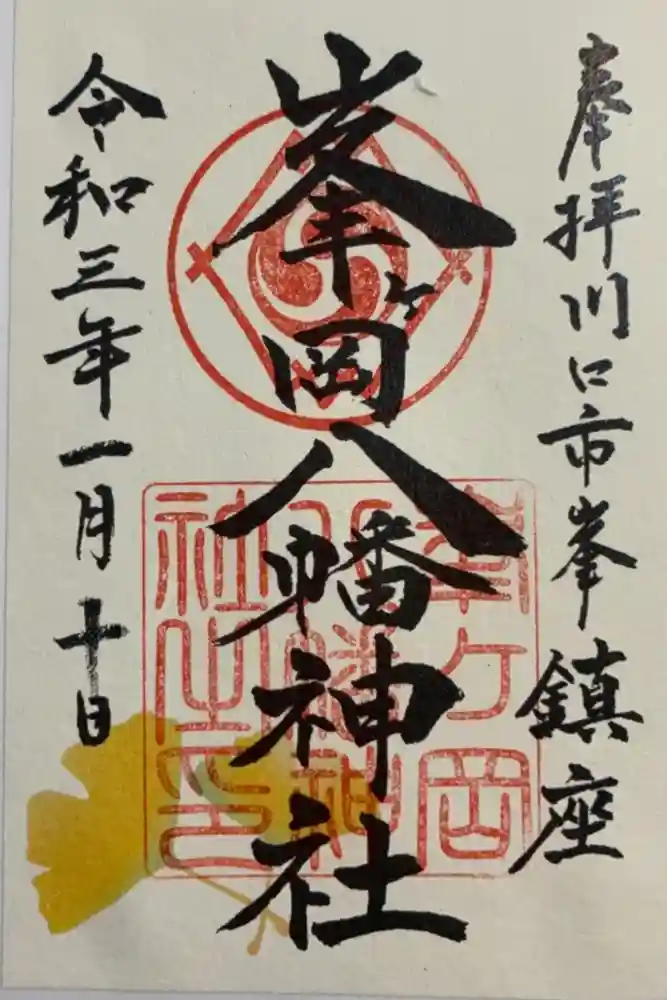 奉拝川口市峯鎮座
峯ヶ岡八幡神社
峯ヶ岡
八幡神
社之印
令和三年一月十日